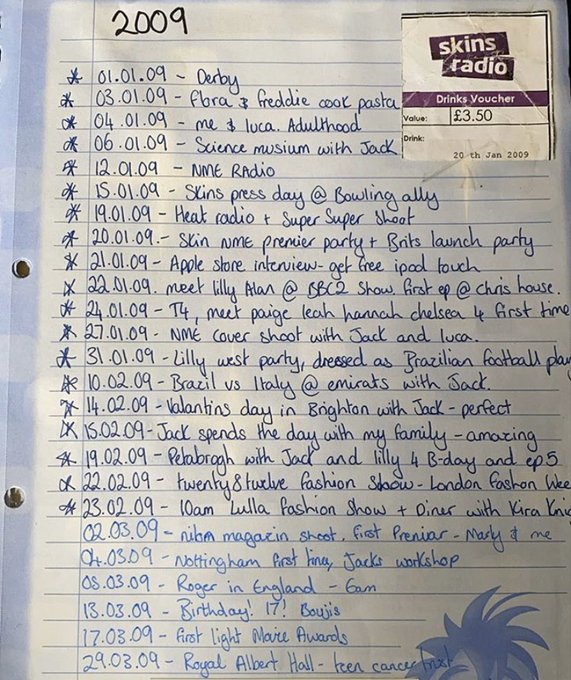 2009
skins
radio
Drinks Voucher
Value: £3.50
Drink:
20 th Jan 2009
* 01.01.09 - Derby
* 03.01.09 - flora & freddie cook pasta
* 04.01.09 - me & luca. Adulthood
* 06.01.09 - Science musium with Jack
* 12.01.09 - NME RADIO
* 15.01.09 - Skins press day @ Bowling ally
* 19.01.09 - Heat radio + Super Super Shoot
* 20.01.09.- Skin NME premier party + Brits launch party
* 21.01.09 - Apple store interview - get free ipod touch
* 22.01.09. meet lilly Alan @ BBC2 Show. first ep @ chris house.
* 24.01.09 - T4, meet paige leah hannah chelsea 4 first time
* 27.01.09 - NME cover shoot with Jack and luca.
* 31.01.09 - Lilly west party, dressed as Brazilian football play
* 10.02.09 - Brazil vs Italy @ emirats with Jack.
* 14.02.09 - Valantins day in Brighton with Jack - perfect
* 15.02.09 - Jack spends the day with my family - amazing
* 19.02.09 - Petabrogh with Jack and lilly 4 B-day and ep 5
* 22.02.09 - twenty8twelve fashion Show - London fashon Wee
* 23.02.09 - 10am Lulla fashion Show + Diner with Kira Kni
02.03.09 - magazin shoot. first Premiar - Marly & me
04.03.09 - Nottingham first time, Jacks workshop
08.03.09 - Roger in England - 6am
13.03.09 - Birthday! 17! Boujis
17.03.09 - first light Movie Awards
29.03.09 - Royal Albert Hall - teen cancer trust